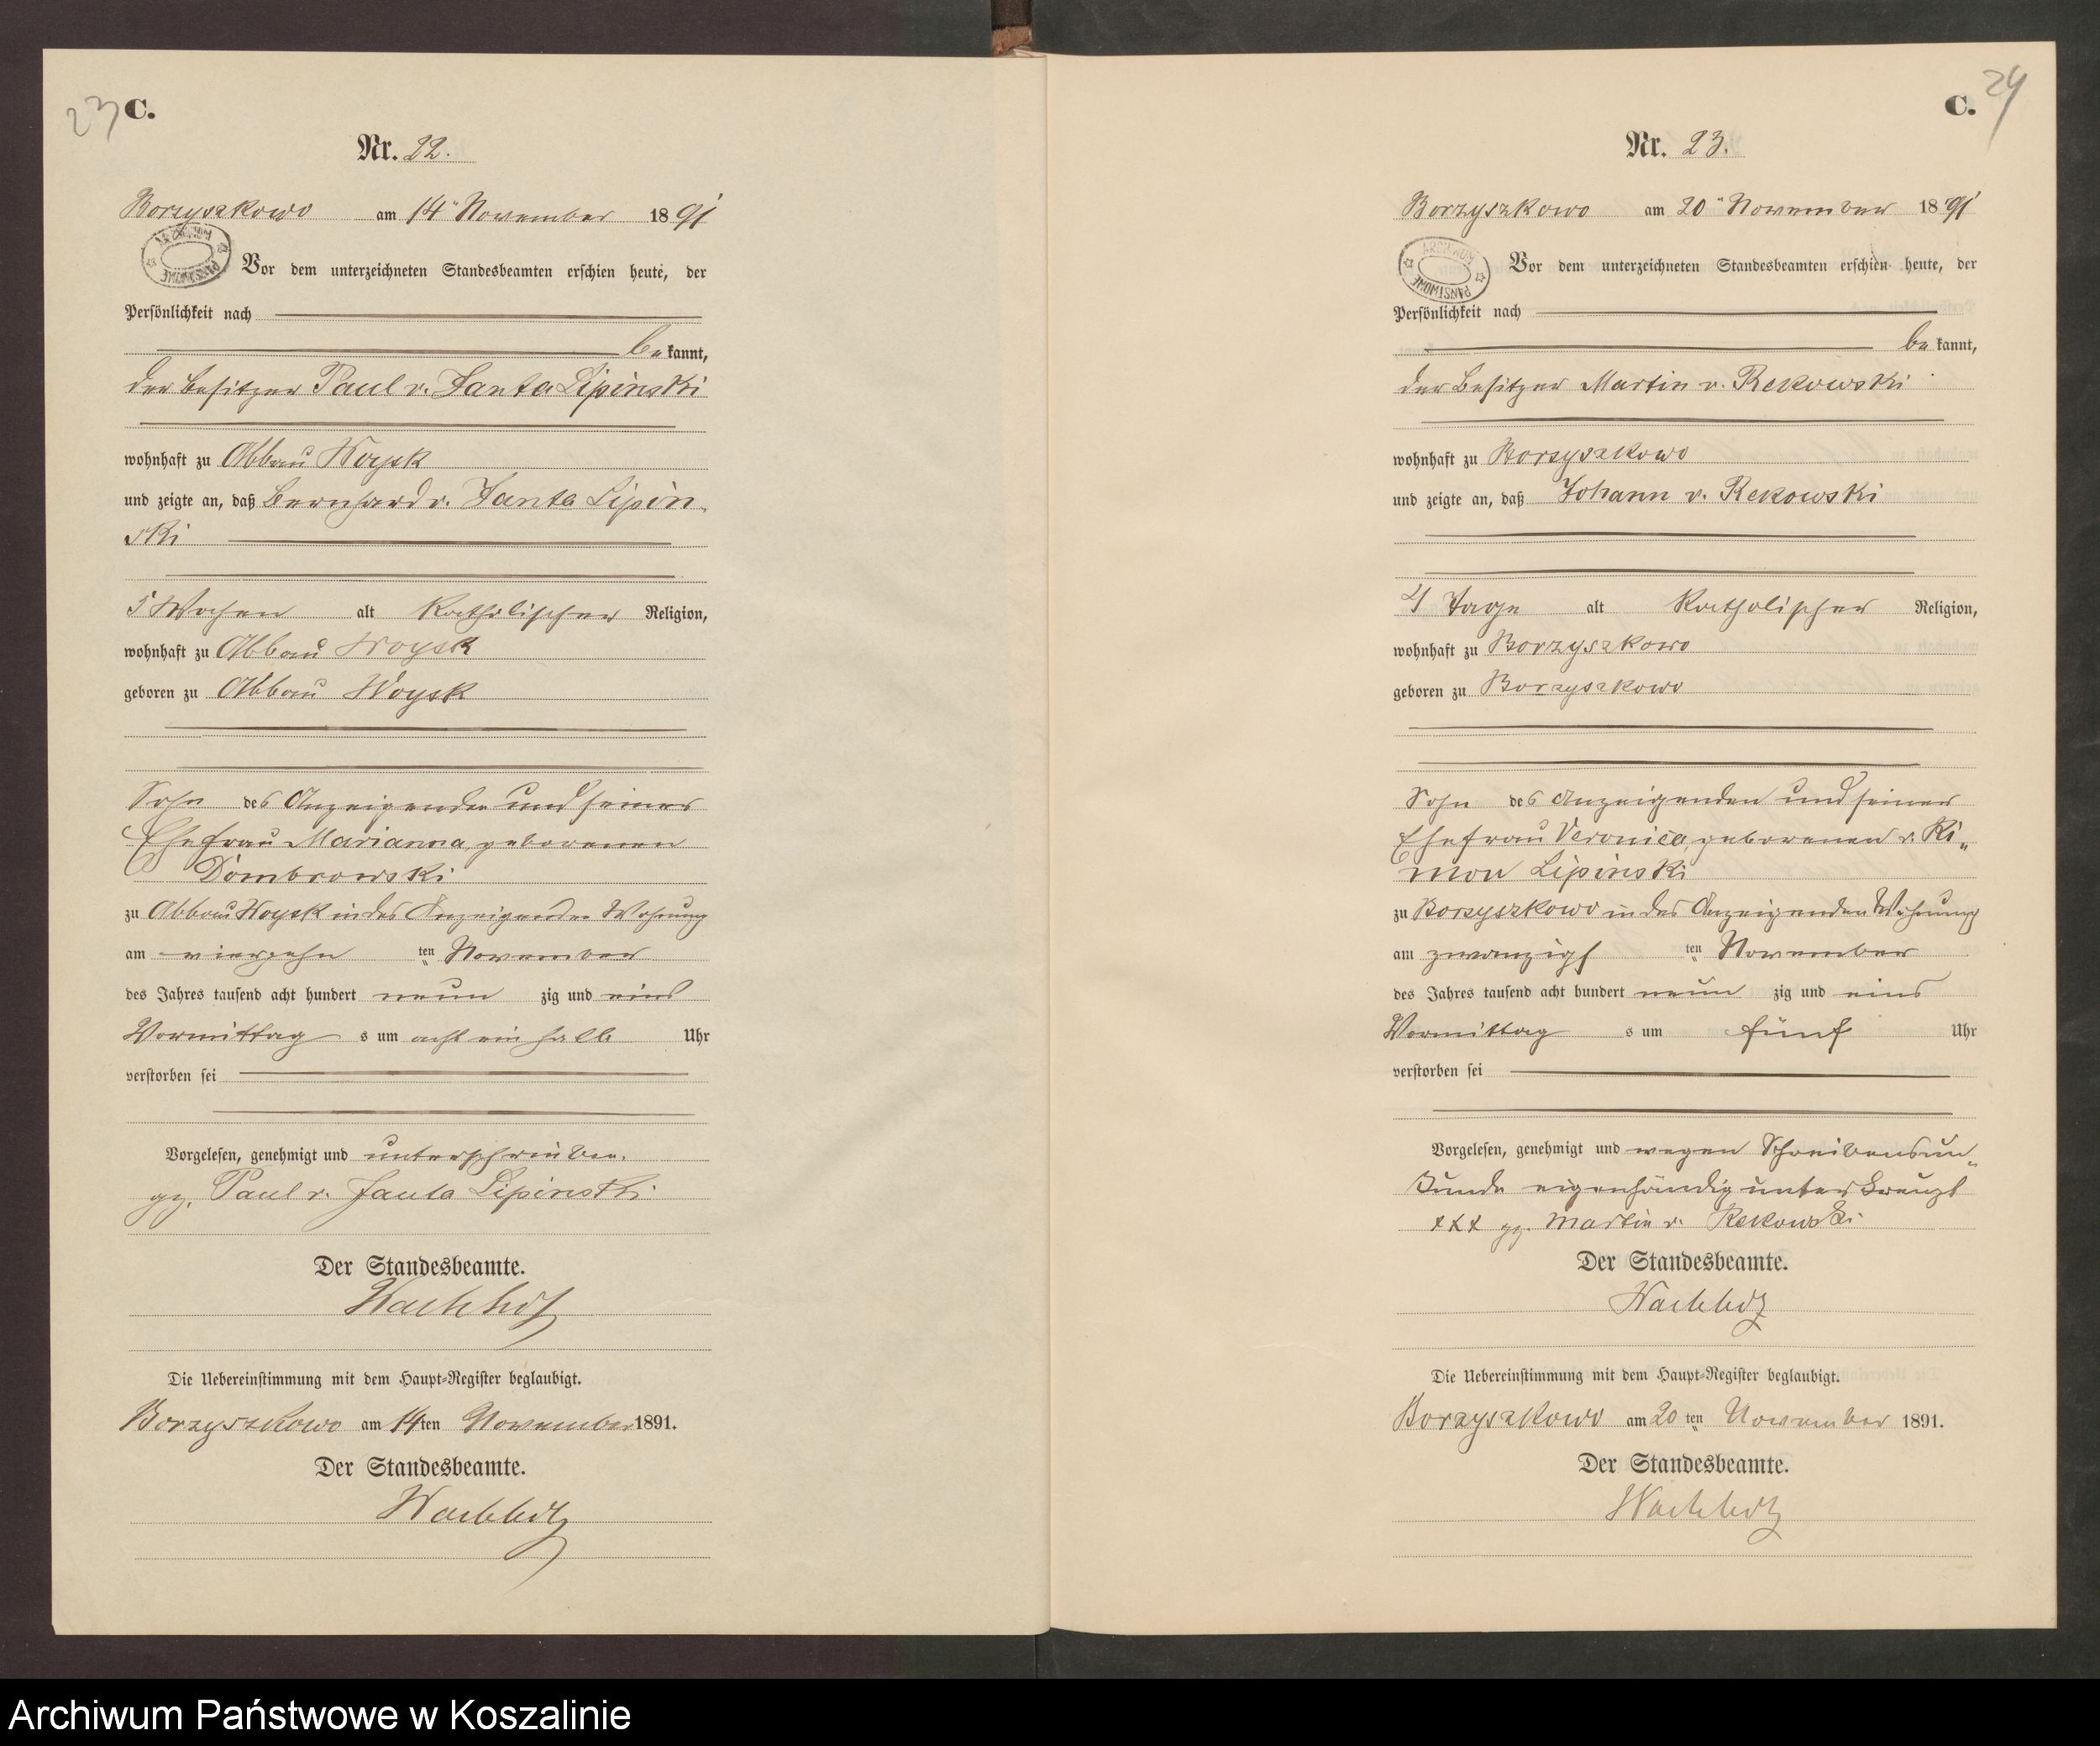 23 C.
Nr. 22.
Borzyszkowo am 14ten November 1891
ARCHIWUM PAŃSTWOWE
Vor dem unterzeichneten Standesbeamten erschien heute, der
Persönlichkeit nach
bekannt,
der Besitzer Paul v. Janta Lipinski
wohnhaft zu Abbau Woysk
und zeigte an, daß Bernhard v. Janta Lipin-
ski
5 Wochen alt katholischer Religion,
wohnhaft zu Abbau Woysk
geboren zu Abbau Woysk
Sohn des Anzeigenden und seiner
Ehefrau Marianna, geborenen
Dombrowski
zu Abbau Woysk in des Anzeigenden Wohnung
am vierzehn ten November
des Jahres tausend acht hundert neun zig und eins
Vormittag s um acht ein halb Uhr
verstorben sei
Vorgelesen, genehmigt und unterschrieben.
gz. Paul v. Janta Lipinski
Der Standesbeamte.
Wachholz
Die Uebereinstimmung mit dem Haupt-Register beglaubigt.
Borzyszkowo am 14ten November 1891.
Der Standesbeamte.
Wachholz
C. 24
Nr. 23.
Borzyszkowo am 20ten November 1891
ARCHIWUM PAŃSTWOWE
Vor dem unterzeichneten Standesbeamten erschien heute, der
Persönlichkeit nach
bekannt,
der Besitzer Martin v. Rekowski
wohnhaft zu Borzyszkowo
und zeigte an, daß Johann v. Rekowski
4 Tage alt katholischer Religion,
wohnhaft zu Borzyszkowo
geboren zu Borzyszkowo
Sohn des Anzeigenden und seiner
Ehefrau Veronica, geborenen v. Ki-
mon Lipinski
zu Borzyszkowo in des Anzeigenden Wohnung
am zwanzigs ten November
des Jahres tausend acht hundert neun zig und eins
Vormittag s um fünf Uhr
verstorben sei
Vorgelesen, genehmigt und wegen Schreibensun-
kunde eigenhändig unterkreuzt
xxx gz. Martin v. Rekowski
Der Standesbeamte.
Wachholz
Die Uebereinstimmung mit dem Haupt-Register beglaubigt.
Borzyszkowo am 20 ten November 1891.
Der Standesbeamte.
Wachholz
Archiwum Państwowe w Koszalinie